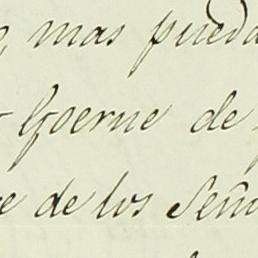 mas pueda
Goerne de
de los Señ